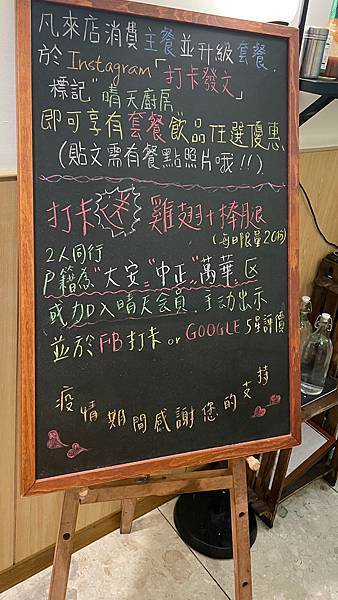 凡來店消費主餐並升級套餐.
於Instagram「打卡發文」
標記"晴天廚房"
即可享有套餐飲品任選優惠
(貼文需有餐點照片哦!!)
打卡送 雞翅+棒腿
(每日限量20份)
2人同行
戶籍為"大安""中正""萬華"區
或加入晴天会員.手动出示
並於FB打卡or GOOGLE 5星評價
疫情期間感謝您的支持